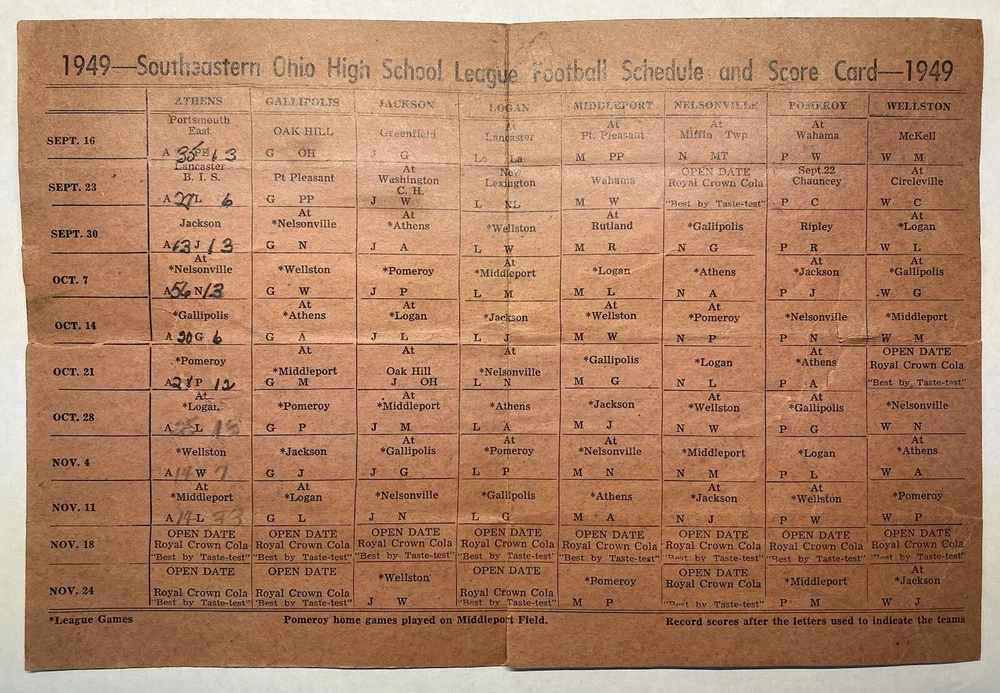 1949—Southeastern Ohio High School League Football Schedule and Score Card—1949
ATHENS GALLIPOLIS JACKSON LOGAN MIDDLEPORT NELSONVILLE POMEROY WELLSTON
SEPT. 16
Portsmouth
East
A 35 PE 13
OAK HILL
G OH
Greenfield
G
At
Lancaster
Lo La
At
Pt. Pleasant
M PP
At
Miffin Twp.
N MT
At
Wahama
P W
McKell
W M
SEPT. 23
Lancaster
B. I. S.
A 27 L 6
Pt Pleasant
G PP
At
Washington
C. H.
J W
New
Lexington
L NL
Wahama
M W
OPEN DATE
Royal Crown Cola
"Best by Taste-test"
Sept.22
Chauncey
P C
At
Circleville
W C
SEPT. 30
Jackson
A 63 J 13
At
*Nelsonville
G N
At
*Athens
J A
*Wellston
L W
At
Rutland
M R
*Gallipolis
N G
Ripley
P R
At
*Logan
W L
OCT. 7
At
*Nelsonville
A 56 N 13
*Wellston
G W
*Pomeroy
J P
At
*Middleport
L M
*Logan
M L
*Athens
N A
At
*Jackson
P J
At
*Gallipolis
W G
OCT. 14
*Gallipolis
A 20 G 6
At
*Athens
G A
At
*Logan
J L
*Jackson
L J
At
*Wellston
M W
At
*Pomeroy
N P
*Nelsonville
P N
*Middleport
W M
OCT. 21
*Pomeroy
A P 12
At
*Middleport
G M
At
Oak Hill
J OH
At
*Nelsonville
L N
*Gallipolis
M G
*Logan
N L
At
*Athens
P A
OPEN DATE
Royal Crown Cola
"Best by Taste-test"
OCT. 28
At
*Logan
A L
*Pomeroy
G P
At
*Middleport
J M
*Athens
L A
*Jackson
M J
At
*Wellston
N W
At
*Gallipolis
P G
*Nelsonville
W N
NOV. 4
*Wellston
A 14 W 7
*Jackson
G J
At
*Gallipolis
J G
At
*Pomeroy
L P
At
*Nelsonville
M N
*Middleport
N M
*Logan
P L
At
*Athens
W A
NOV. 11
At
*Middleport
A 14 L 33
At
*Logan
G L
*Nelsonville
J N
*Gallipolis
L G
*Athens
M A
At
*Jackson
N J
At
*Wellston
P W
*Pomeroy
W P
NOV. 18
OPEN DATE OPEN DATE OPEN DATE OPEN DATE OPEN DATE OPEN DATE OPEN DATE OPEN DATE
Royal Crown Cola Royal Crown Cola Royal Crown Cola Royal Crown Cola Royal Crown Cola Royal Crown Cola Royal Crown Cola Royal Crown Cola
"Best by Taste-test" "Best by Taste-test" "Best by Taste-test" "Best by Taste-test" "Best by Taste-test" "Best by Taste-test" "Best by Taste-test" "Best by Taste-test"
NOV. 24
OPEN DATE
Royal Crown Cola
"Best by Taste-test"
OPEN DATE
Royal Crown Cola
"Best by Taste-test"
*Wellston
J W
OPEN DATE
Royal Crown Cola
"Best by Taste-test"
*Pomeroy
M P
OPEN DATE
Royal Crown Cola
"Best by Taste-test"
*Middleport
P M
At
*Jackson
W J
*League Games
Pomeroy home games played on Middleport Field.
Record scores after the letters used to indicate the teams